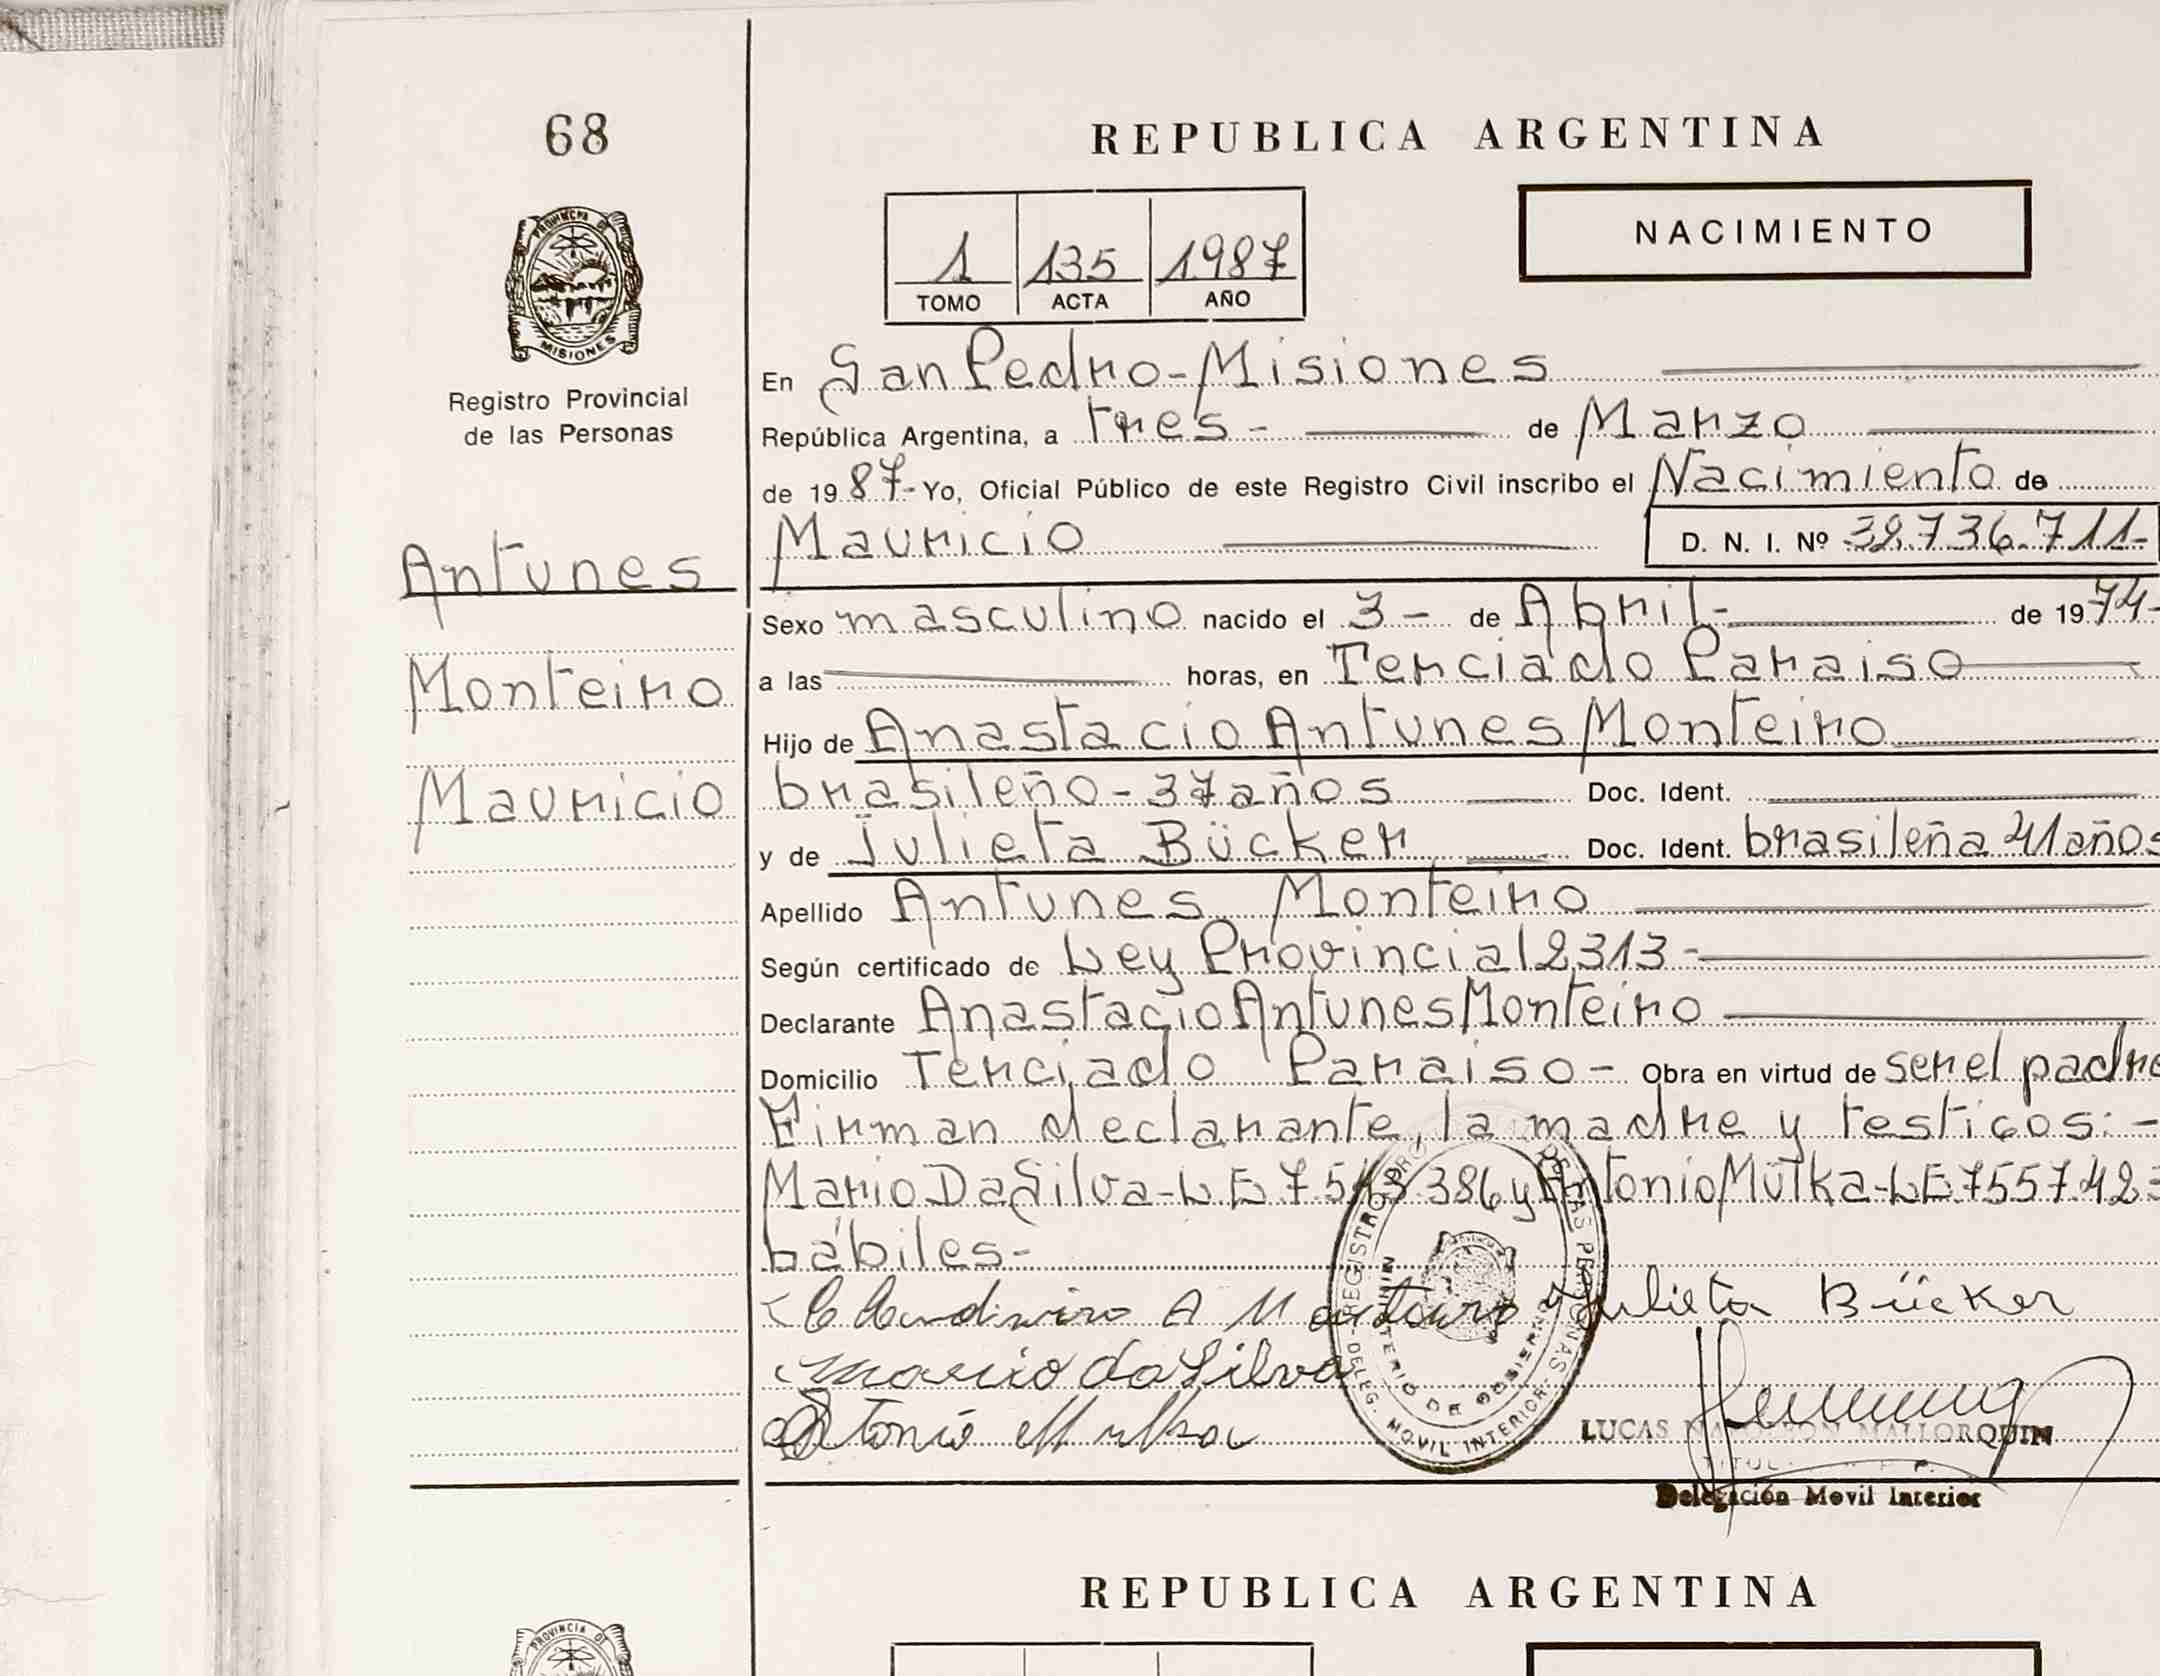 68
REPUBLICA ARGENTINA
NACIMIENTO
1 135 1987
TOMO ACTA AÑO
PROVINCIA DE
MISIONES
Registro Provincial
de las Personas
En San Pedro - Misiones
República Argentina, a tres - de Marzo
de 1987- Yo, Oficial Público de este Registro Civil inscribo el Nacimiento de
Mauricio D. N. I. Nº 32.736.711-
Antunes
Monteiro
Mauricio
Sexo masculino nacido el 3 - de Abril - de 1974-
a las horas, en Terciado Paraiso
Hijo de Anastacio Antunes Monteiro
brasileño - 37 años Doc. Ident.
y de Julieta Bücker Doc. Ident. brasileña 41 años
Apellido Antunes Monteiro
Según certificado de Ley Provincial 2313 -
Declarante Anastacio Antunes Monteiro
Domicilio Terciado Paraiso - Obra en virtud de ser el padre
Firman declarante, la madre y testigos: -
Mario Da Silva - LE 7 386 y Antonio Mutka - LE 755742
hábiles -
A Julieta Bücker
Mario da Silva
Antonio Mutka
REGISTRO DE LAS PERSONAS
MINISTERIO DE GOBIERNO
DELEG. MOVIL INTERIOR
LUCAS NAPOLEON MALLORQUIN
Delegación Movil Interior
REPUBLICA ARGENTINA
PROVINCIA DE